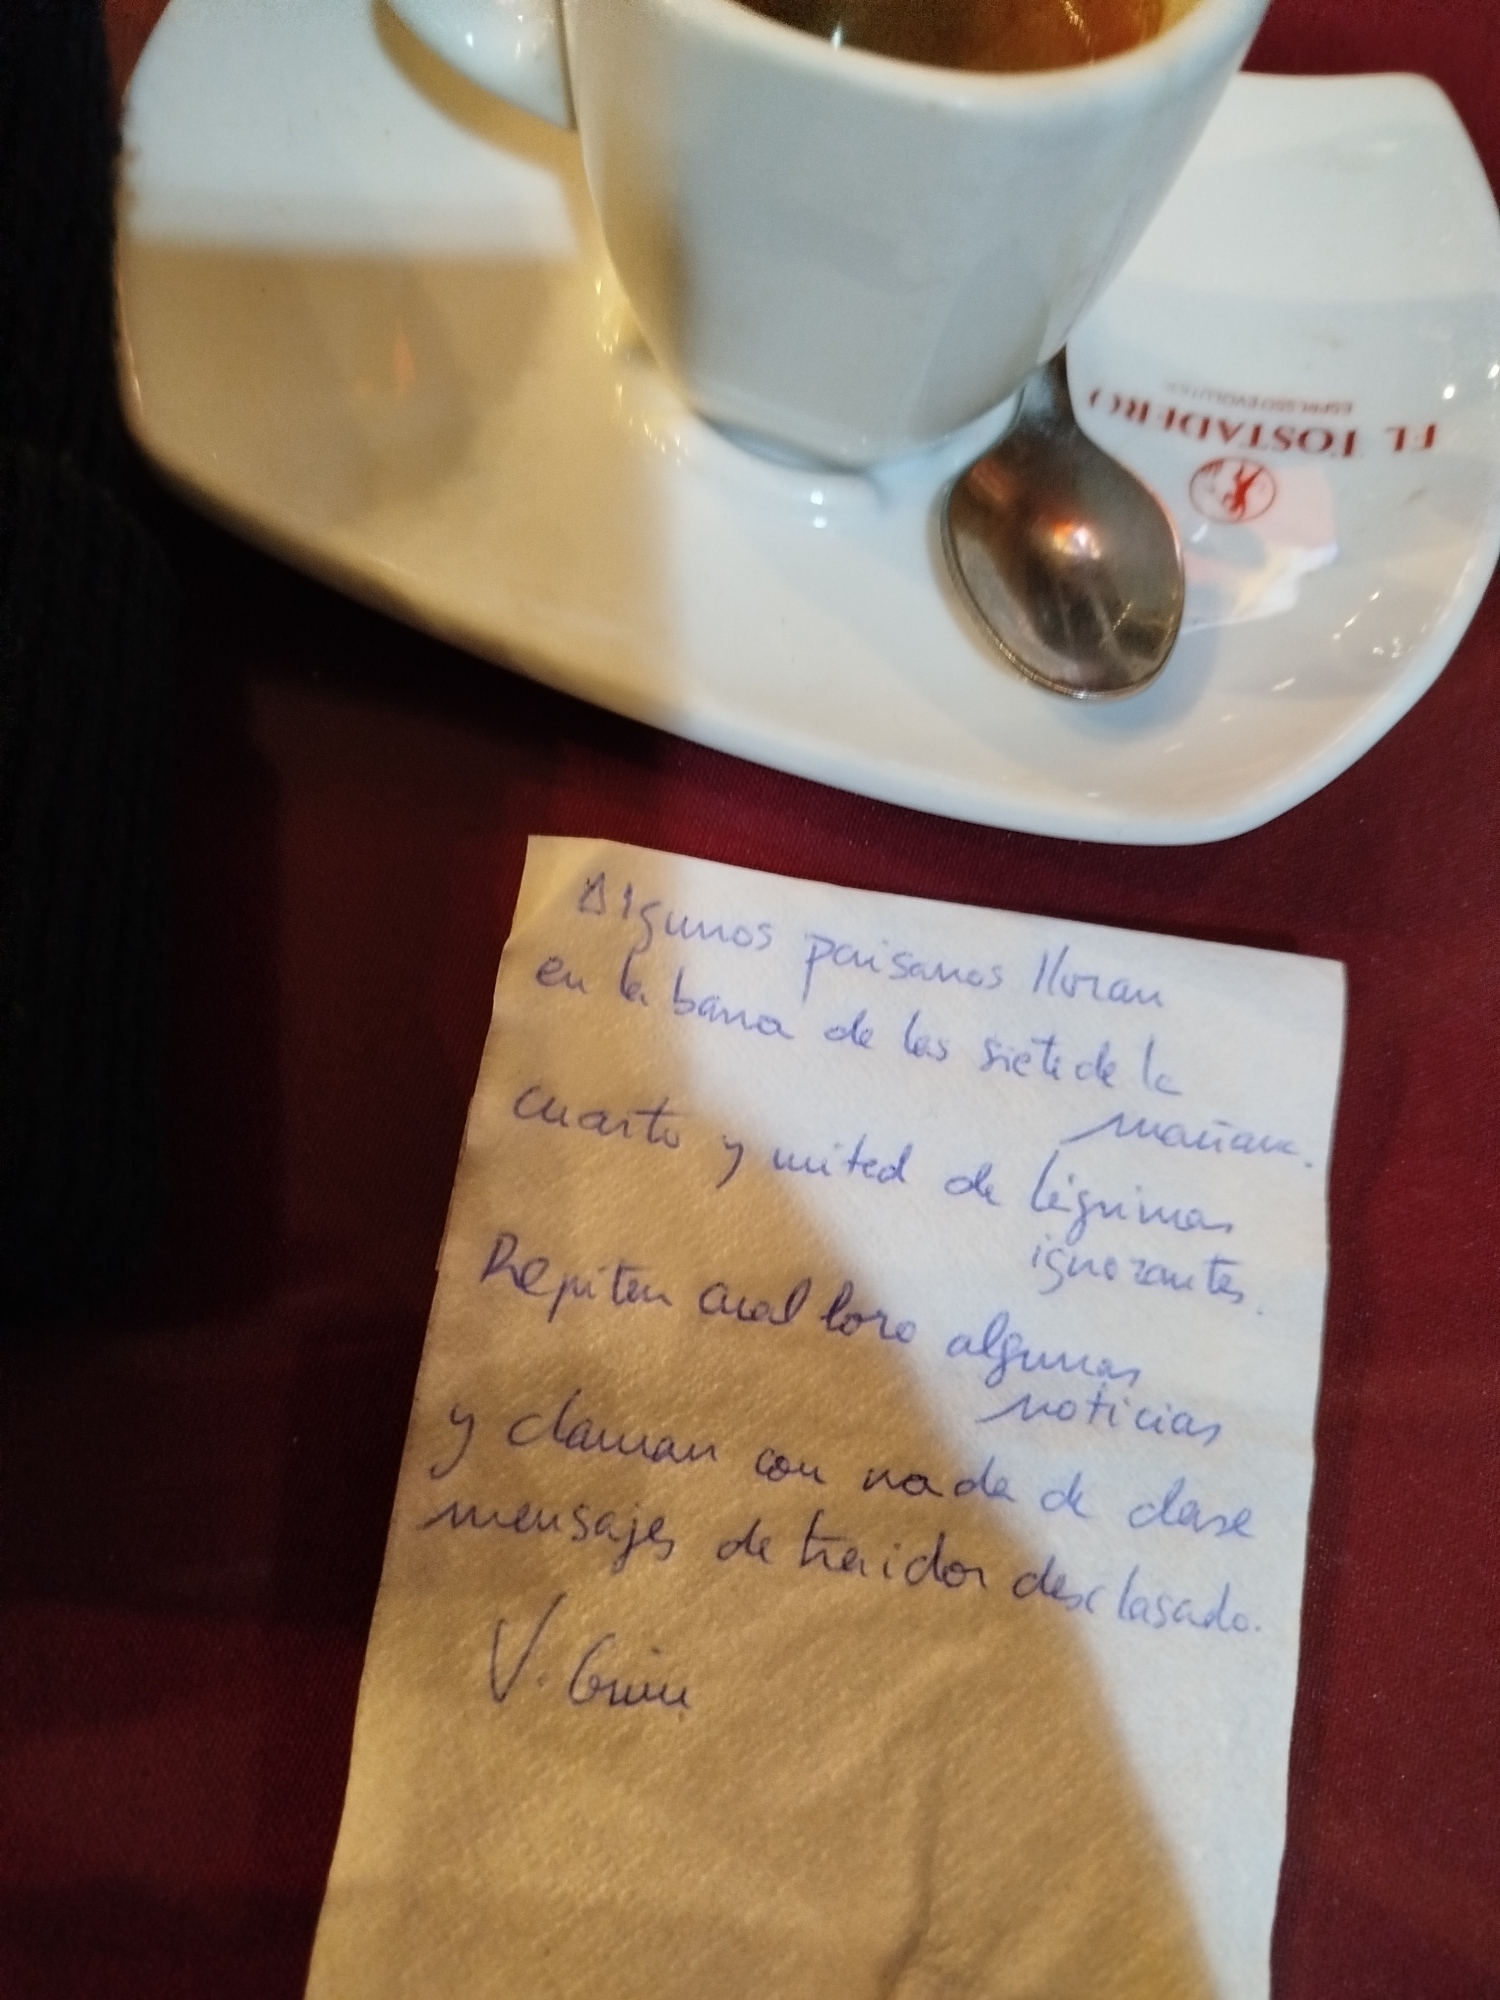 EL TOSTADERO
ESPRESSO EVOLUTION
Algunos paisanos lloran
en la barra de las siete de la
mañana.
cuarto y mitad de lágrimas
ignorantes.
Repiten cual loro algunas
noticias
y claman con nada de clase
mensajes de traidor desclasado.
V.